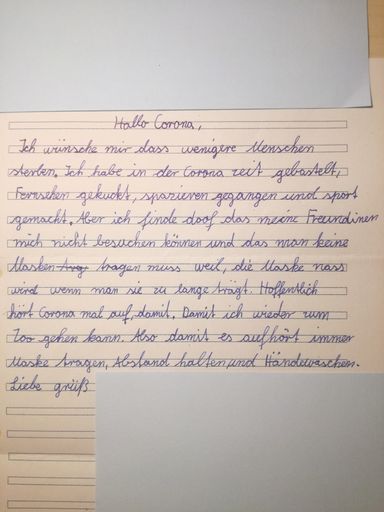 Hallo Corona,
Ich wünsche mir dass wenigere Menschen
sterben. Ich habe in der Corona zeit gebastelt,
Fernsehen gekuckt, spazieren gegangen und sport
gemacht. Aber ich finde doof das meine Freundinen
mich nicht besuchen können und das man keine
Masken trag tragen muss weil, die Maske nass
wird wenn man sie zu lange trägt. Hoffentlich
hört Corona mal auf, damit. Damit ich wieder zum
Zoo gehen kann. Also damit es aufhört immer
Maske tragen, Abstand halten, und Händewaschen.
Liebe grüß